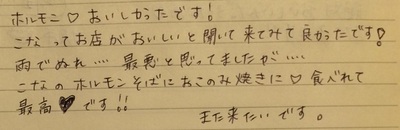 ホルモン♡おいしかったです!
こなってお店がおいしいと聞いて来てみて良かったです!
雨でぬれ…. 最悪と思ってましたが….
こなのホルモンそばにおこのみ焼きに♡食べれて
最高♥です!!
また来たいです。